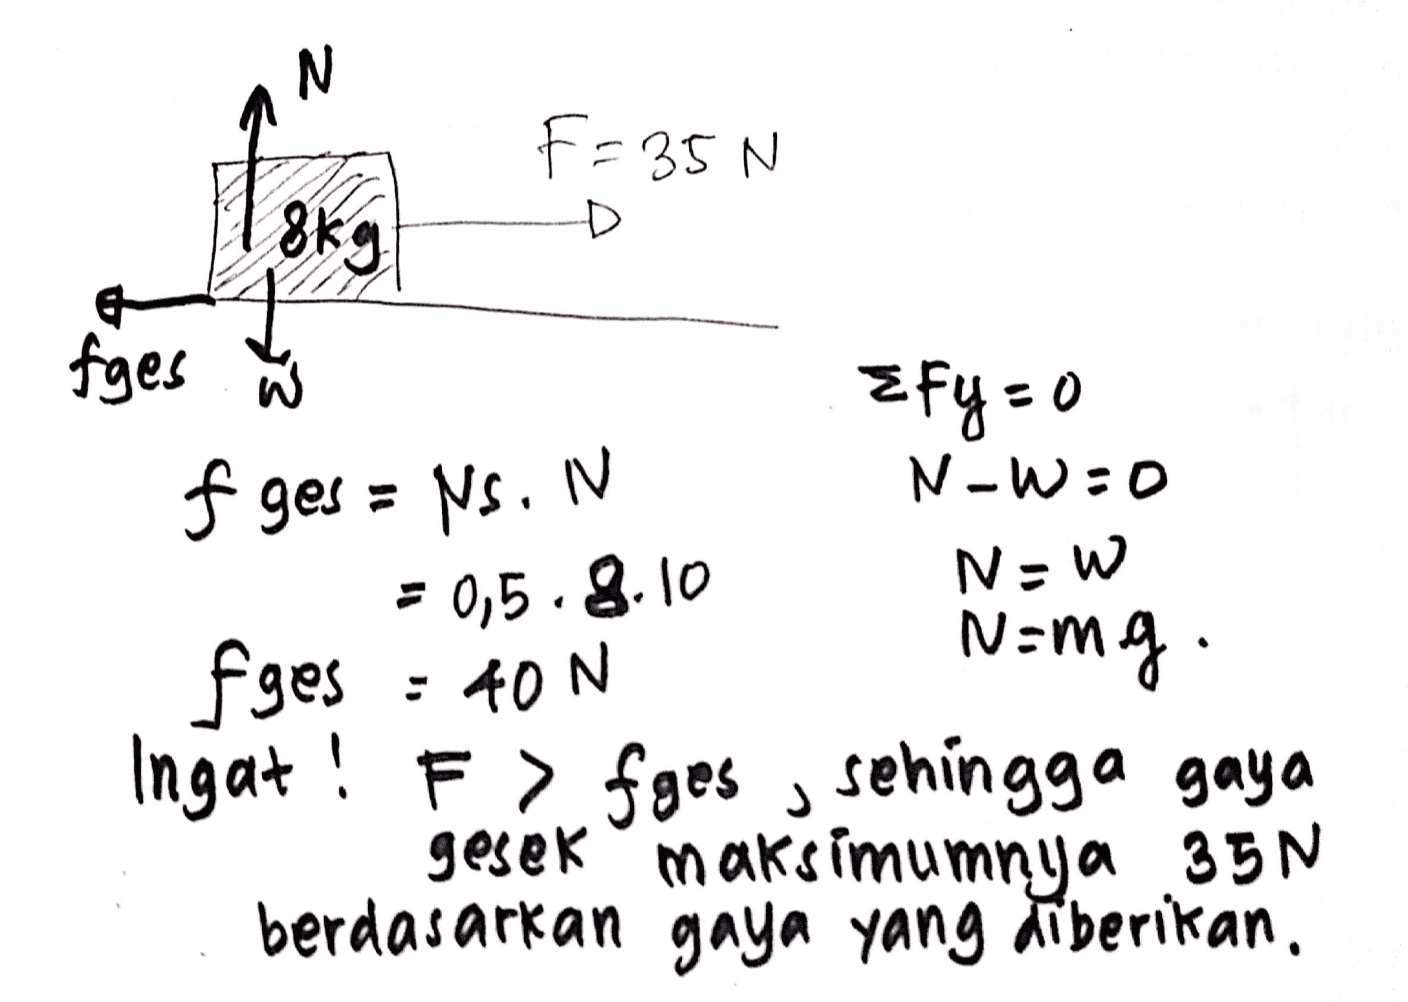 N
F = 35 N
8kg
fges
w
ΣFy = 0
f ges = μs. N
N - W = 0
= 0,5 . 8. 10
N = W
N = mg.
fges = 40 N
Ingat ! F > fges , sehingga gaya
gesek maksimumnya 35 N
berdasarkan gaya yang diberikan.